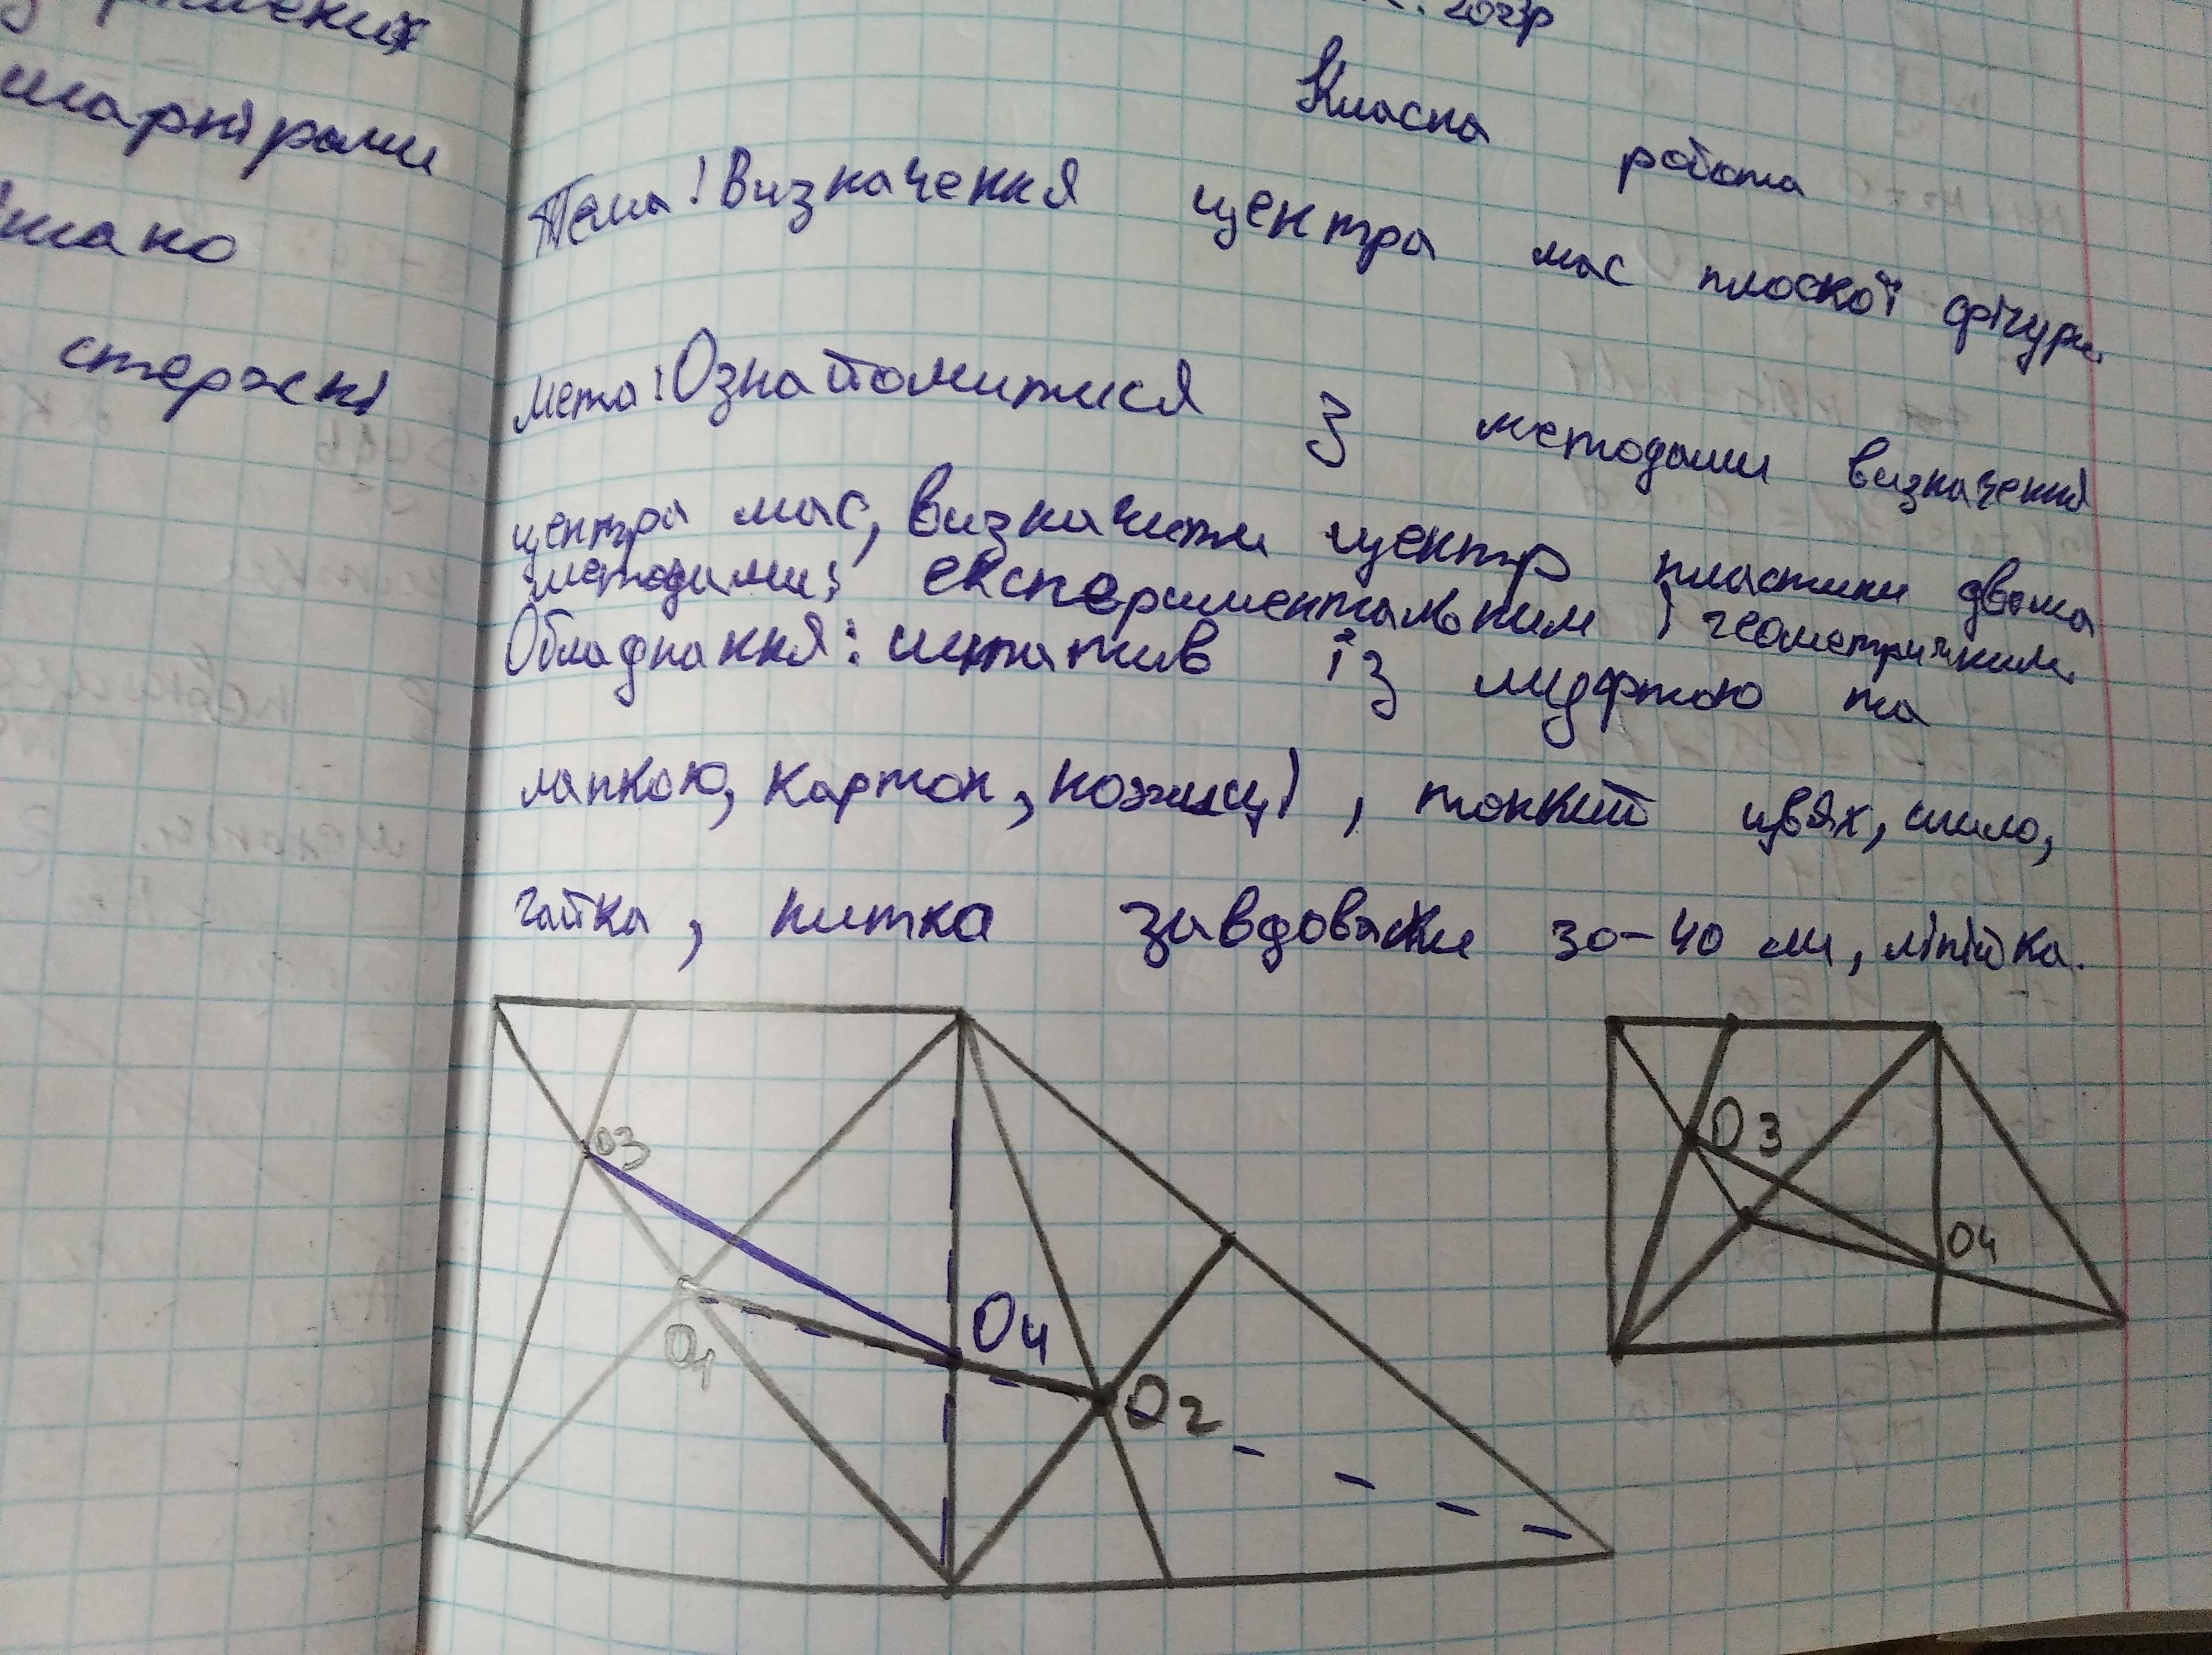 шарнірами
стержні
2023р
Класна робота
Тема! Визначення центра мас плоскої фігури.
Мета! Ознайомитися з методами визначення
центра мас, визначити центр пластини двома
методами; експериментальним і геометричним.
Обладнання: штатив із муфтою та
лапкою, картон, ножиці, тонкий цвях, шило,
гайка, нитка завдовжки 30-40 см, лінійка.
О3
О1
О4
О2
О3
О4